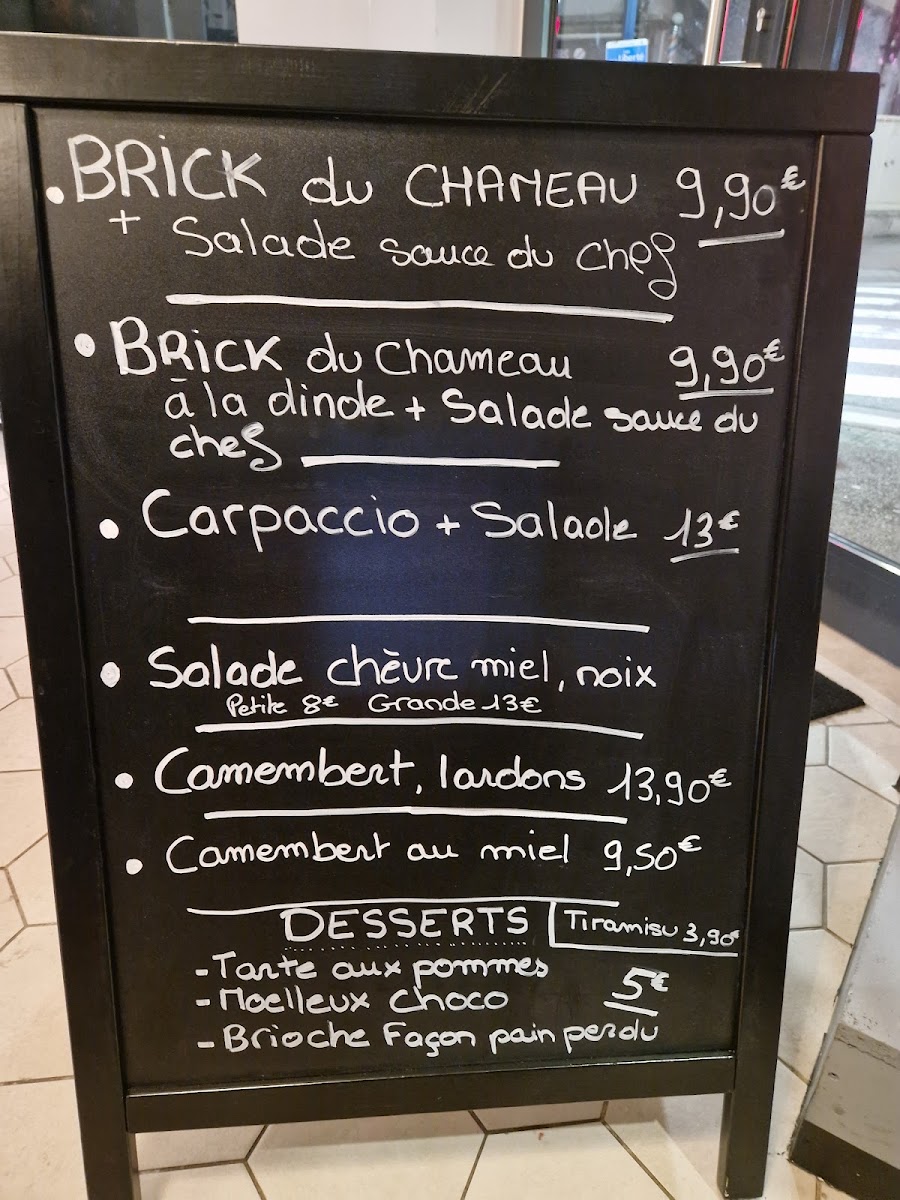 . BRICK du CHAMEAU 9,90€
+ Salade sauce du chef
• BRICK du Chameau 9,90€
à la dinde + Salade sauce du
chef
• Carpaccio + Salade 13€
• Salade chèvre miel, noix
Petite 8€ Grande 13€
• Camembert, lardons 13,90€
• Camembert au miel 9,50€
DESSERTS Tiramisu 3,90€
- Tarte aux pommes
- Moelleux choco 5€
- Brioche Façon pain perdu